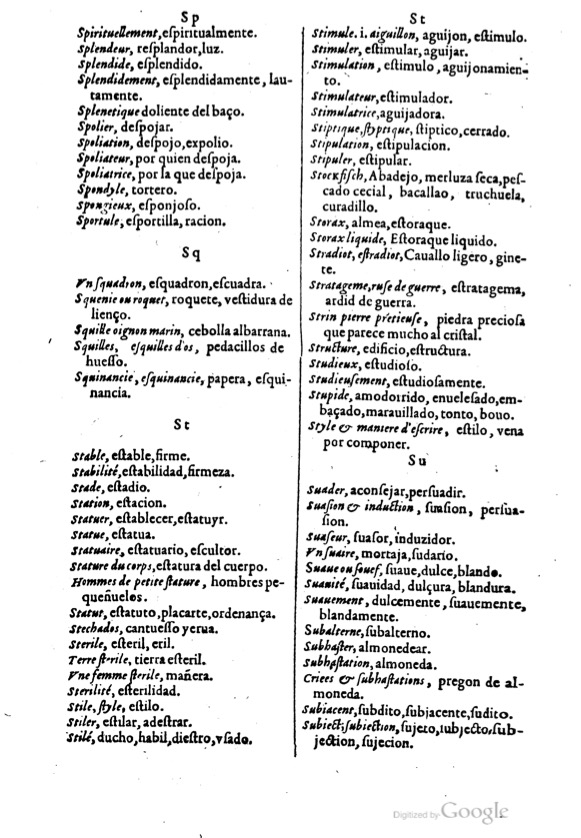 Sp
Spirituellement, eſpiritualmente.
Splendeur, reſplandor, luz.
Splendide, eſplendido.
Splendidement, eſplendidamente, lau-
tamente.
Splenetique doliente del baço.
Spolier, deſpojar.
Spoliation, deſpojo, expolio.
Spoliateur, por quien deſpoja.
Spoliatrice, por la que deſpoja.
Spondyle, tortero.
Spongieux, eſponjoſo.
Sportule, eſportilla, racion.
Sq
Vn ſquadron, eſquadron, eſcuadra.
Squenie ou roquet, roquete, veſtidura de
lienço.
Squille oignon marin, cebolla albarrana.
Squilles, eſquilles d'os, pedacillos de
hueſſo.
Squinancie, eſquinancie, papera, eſqui-
nancia.
St
Stable, eſtable, firme.
Stabilité, eſtabilidad, firmeza.
Stade, eſtadio.
Station, eſtacion.
Statuer, eſtablecer, eſtatuyr.
Statue, eſtatua.
Statuaire, eſtatuario, eſcultor.
Stature du corps, eſtatura del cuerpo.
Hommes de petite ſtature, hombres pe-
queñuelos.
Statut, eſtatuto, placarte, ordenança.
Stechados, cantueſſo yerua.
Sterile, eſteril, eril.
Terre ſterile, tierra eſteril.
Vne femme ſterile, mañera.
Sterilité, eſterilidad.
Stile, ſtyle, eſtilo.
Stiler, eſtilar, adeſtrar.
Stilé, ducho, habil, dieſtro, vſado.
St
Stimule. i. aiguillon, aguijon, eſtimulo.
Stimuler, eſtimular, aguijar.
Stimulation, eſtimulo, aguijonamien-
to.
Stimulateur, eſtimulador.
Stimulatrice, aguijadora.
Stiptique, ſtyptique, ſtiptico, cerrado.
Stipulation, eſtipulacion.
Stipuler, eſtipular.
Stockfiſch, Abadejo, merluza ſeca, peſ-
cado cecial, bacallao, truchuela,
curadillo.
Storax, almea, eſtoraque.
Storax liquide, Eſtoraque liquido.
Stradiot, eſtradiot, Cauallo ligero, gine-
te.
Stratageme, ruſe de guerre, eſtratagema,
ardid de guerra.
Strin pierre pretieuſe, piedra precioſa
que parece mucho al criſtal.
Structure, edificio, eſtructura.
Studieux, eſtudioſo.
Studieuſement, eſtudioſamente.
Stupide, amodorrido, enueleſado, em-
baçado, marauillado, tonto, bouo.
Style & maniere d'eſcrire, eſtilo, vena
por componer.
Su
Suader, aconſejar, perſuadir.
Suaſion & induction, ſuaſion, perſua-
ſion.
Suaſeur, ſuaſor, induzidor.
Vn ſuaire, mortaja, ſudario.
Suaue ou ſouef, ſuaue, dulce, blando.
Suauité, ſuauidad, dulçura, blandura.
Suauement, dulcemente, ſuauemente,
blandamente.
Subalterne, ſubalterno.
Subhaſter, almonedear.
Subhaſtation, almoneda.
Criees & ſubhaſtations, pregon de al-
moneda.
Subiacent, ſubdito, ſubjacente, ſudito.
Subiect, ſubiection, ſujeto, ſubjecto, ſub-
jection, ſujecion.
Digitized by Google